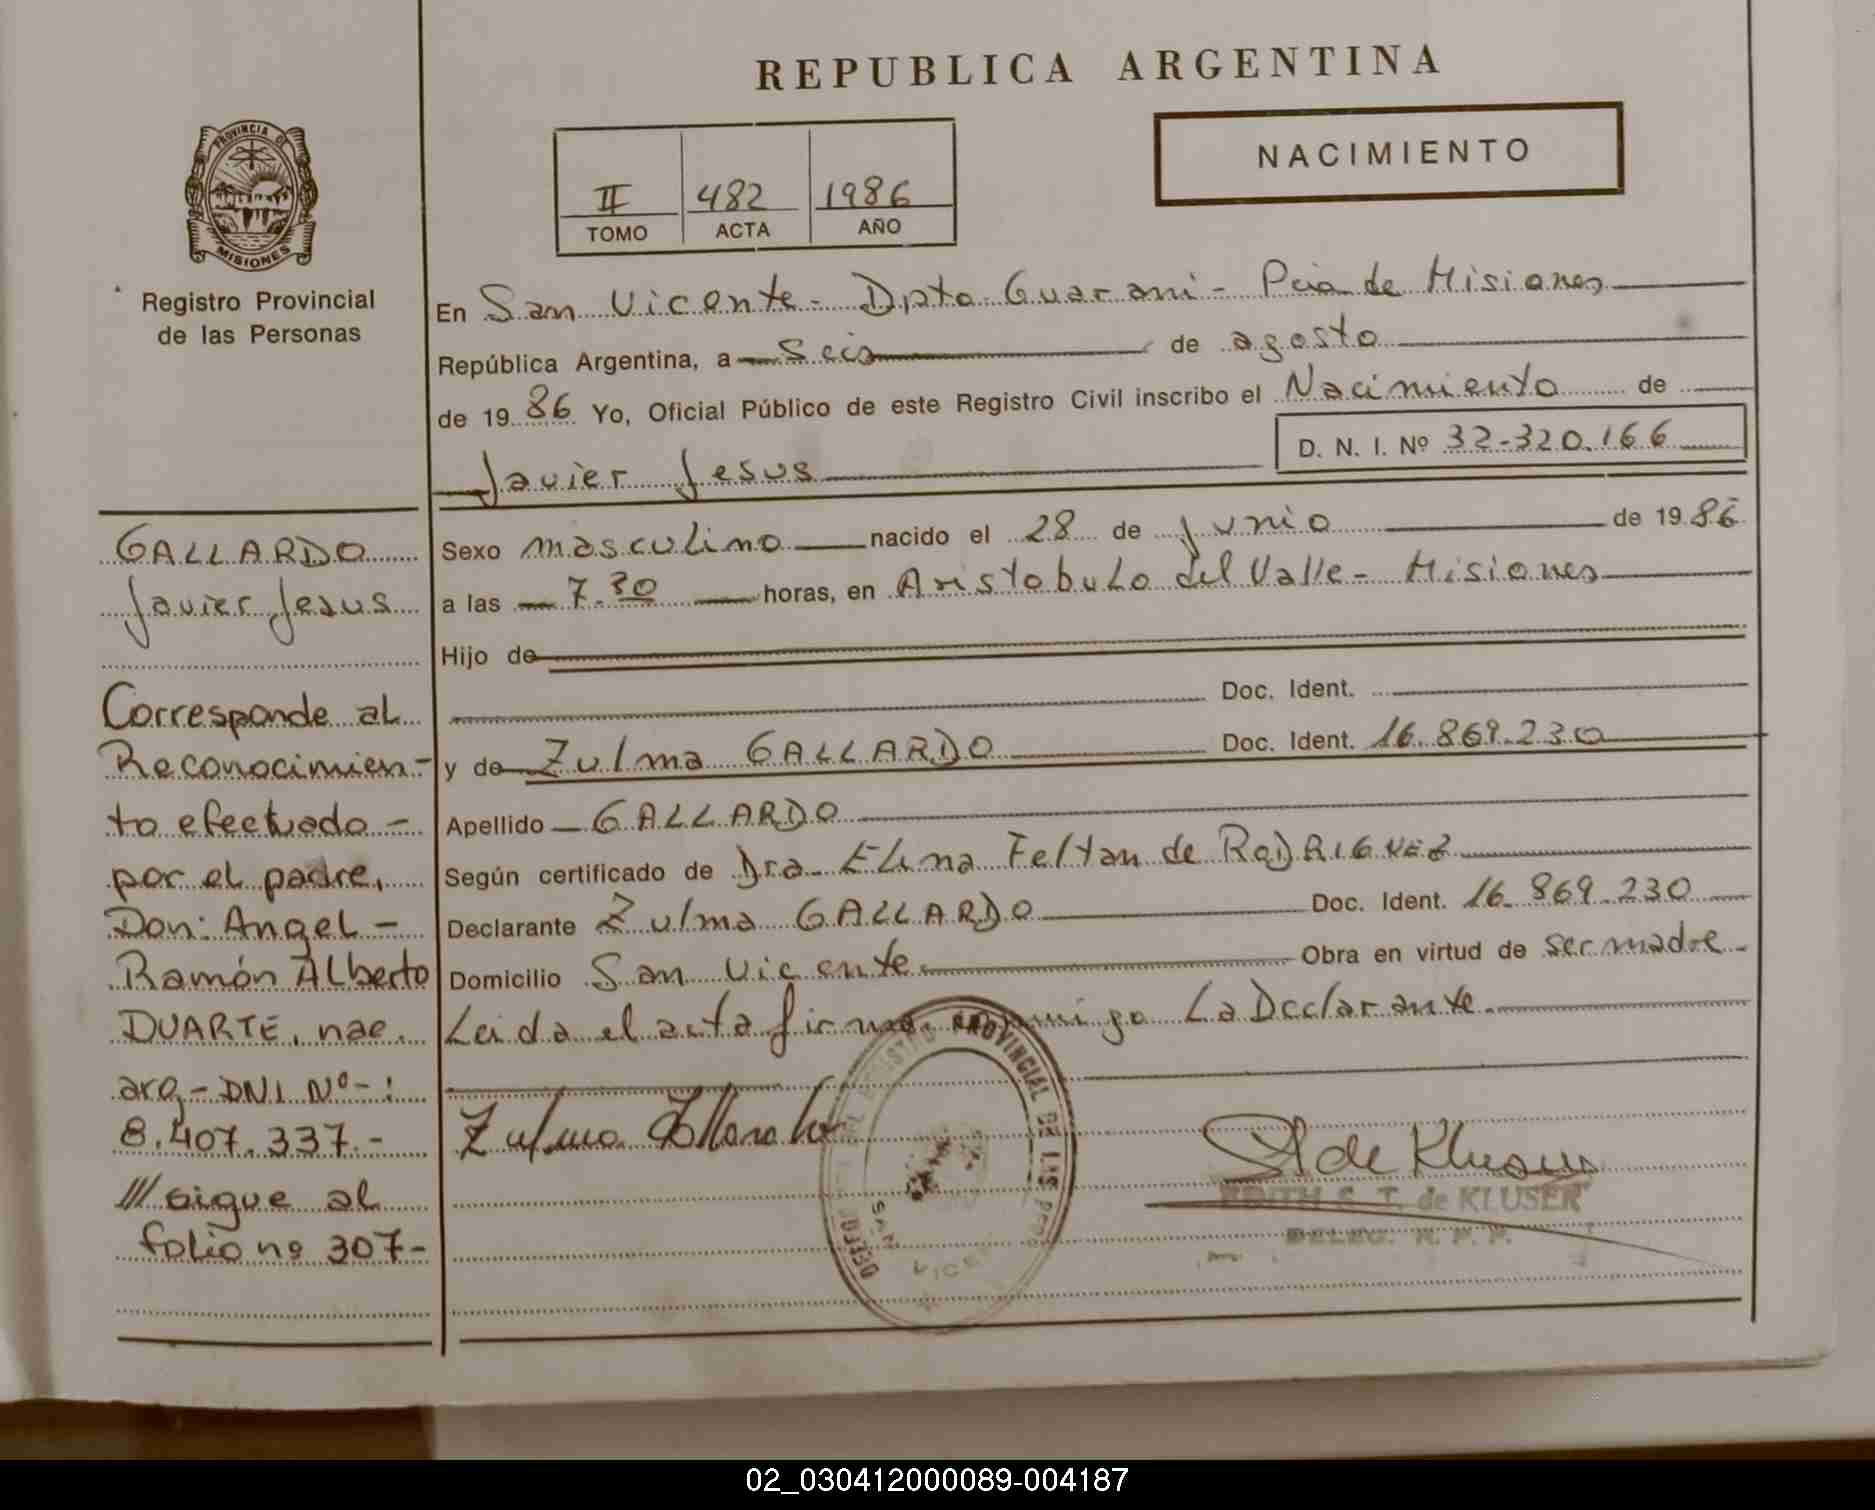 REPUBLICA ARGENTINA
NACIMIENTO
II 482 1986
TOMO ACTA AÑO
PROVINCIA DE
MISIONES
Registro Provincial
de las Personas
En San Vicente - Dpto Guarani - Pcia de Misiones
República Argentina, a Seis de agosto
de 1986 Yo, Oficial Público de este Registro Civil inscribo el Nacimiento de
D. N. I. Nº 32-320.166
Javier Jesus
Sexo masculino nacido el 28 de junio de 1986
a las 7.30 horas, en Aristobulo del Valle - Misiones
Hijo de
Doc. Ident.
y de Zulma GALLARDO Doc. Ident. 16.869.230
Apellido GALLARDO
Según certificado de Dra. Elena Feltan de RODRIGUEZ
Declarante Zulma GALLARDO Doc. Ident. 16.869.230
Domicilio San Vicente Obra en virtud de ser madre -
Leida el acta firma conmigo La Declarante.
Zulma Gallardo
REGISTRO PROVINCIAL DE LAS
SAN VICEN
EDITH S. T. de KLUSER
DELEG. R. P. P.
GALLARDO
Javier Jesus
Corresponde al
Reconocimien-
to efectuado -
por el padre,
Don: Angel -
Ramón Alberto
DUARTE, nac.
arg.- DNI Nº- :
8.407.337.-
/// sigue al
folio nº 307-
02_030412000089-004187